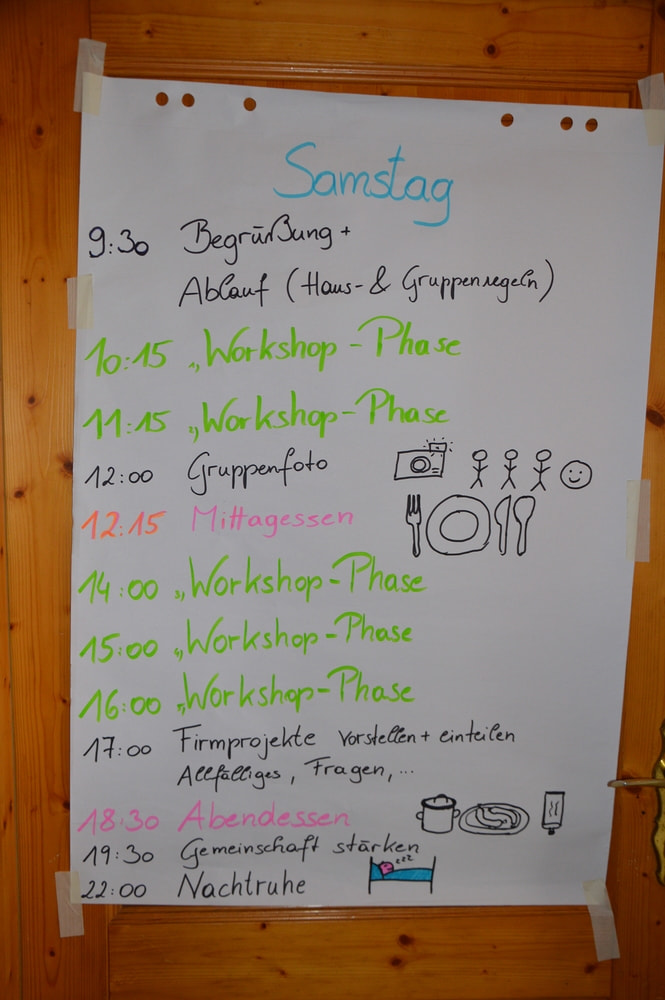 Samstag
9:30 Begrüßung +
Ablauf (Haus- & Gruppenregeln)
10:15 1„Workshop-Phase
11:15 2„Workshop-Phase
12:00 Gruppenfoto
12:15 Mittagessen
14:00 3„Workshop-Phase
15:00 4„Workshop-Phase
16:00 „Workshop-Phase
17:00 Firmprojekte vorstellen + einteilen
Allfälliges, Fragen, ...
18:30 Abendessen
19:30 Gemeinschaft stärken
22:00 Nachtruhe
zzz